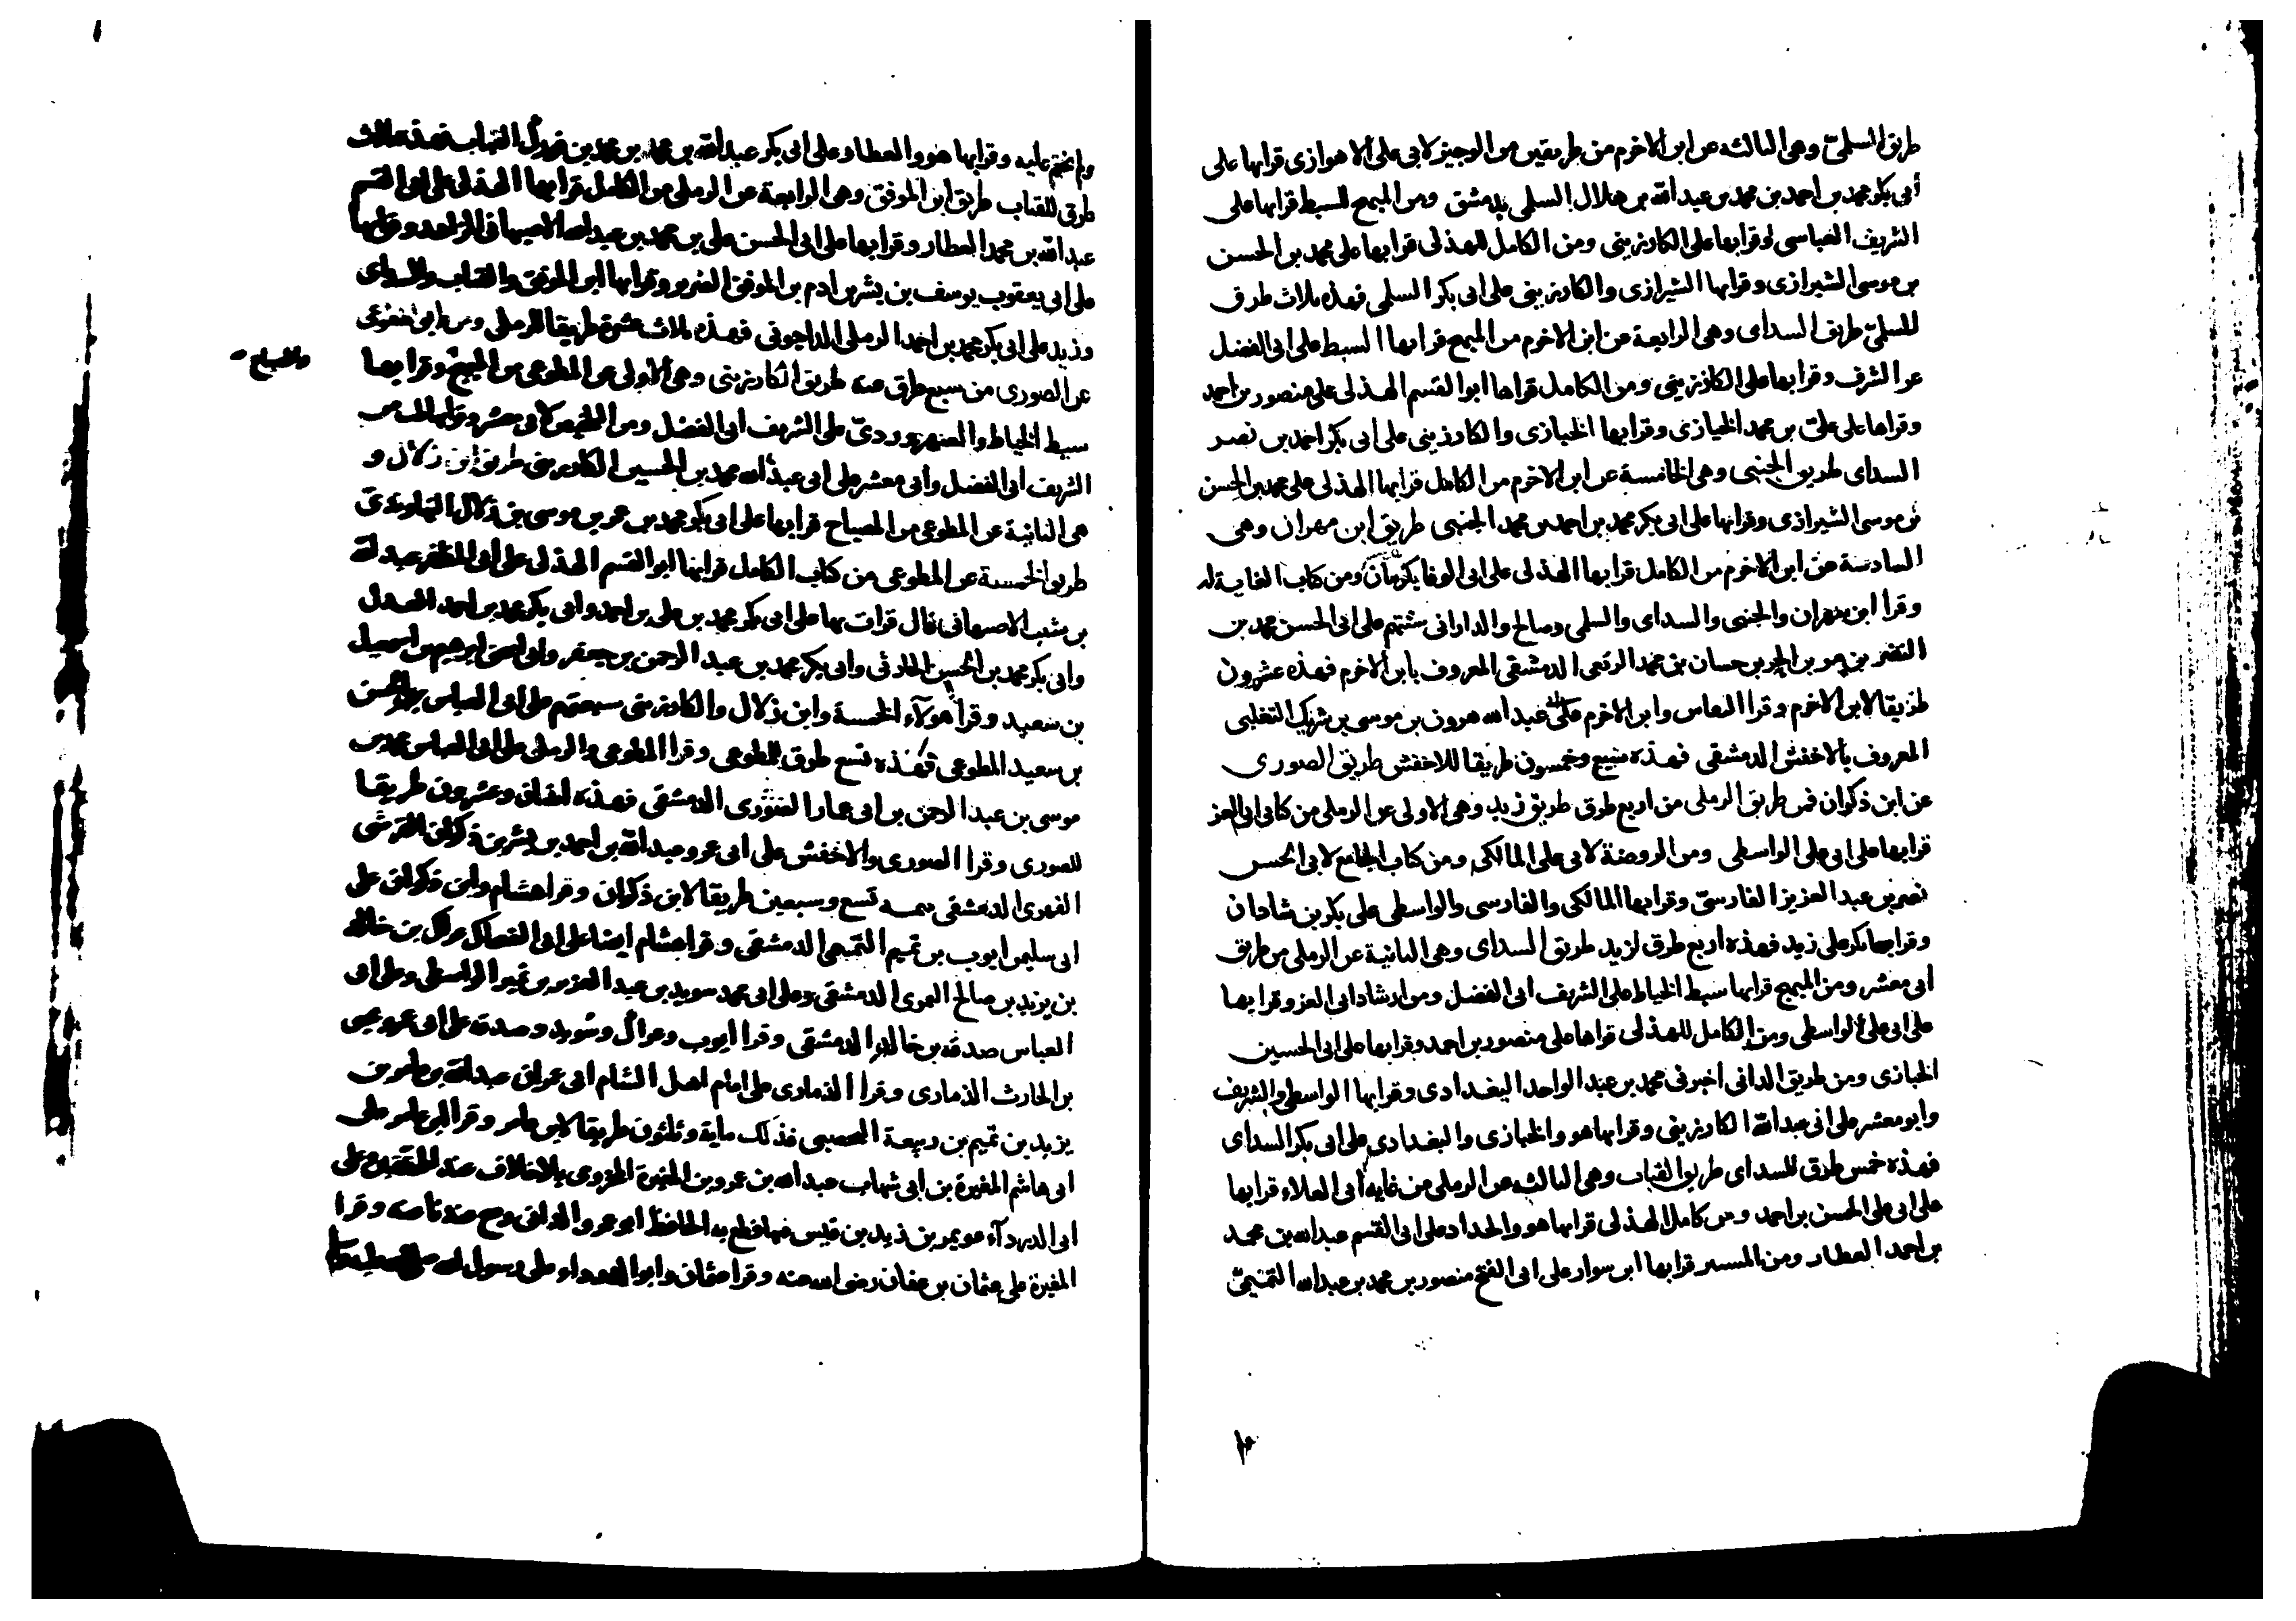 طريق السلمي وهي الثالثه عن ابن الاخرم من طريقين من الوجيز لابي علي الاهوازي قرابها على
أبي بكر محمد بن احمد بن محمد بن عبد الله بن هلال السلمي بدمشق ومن المبهج للسبط قرابها على
الشريف العباسي وقرابها على الكارزيني ومن الكامل للهذلي قرابها على محمد بن الحسن
بن موسى الشيرازي وقرابها الشيرازي والكارزيني على ابي بكر السلمي فهذه ثلاث طرق
للسلمي طريق السداى وهي الرابعة عن ابن الاخرم من المبهج قرابها السبط على ابي الفضل
عز الشرف وقرابها على الكارزيني ومن الكامل قراها ابو القسم الهذلي على منصور بن احمد
وقراها على علي بن محمد الخبازي وقرابها الخبازي والكارزيني على ابي بكر احمد بن نصر
السداى طريق الجبني وهي الخامسة عن ابن الاخرم من الكامل قرابها الهذلي على محمد بن الحسن
بن موسى الشيرازي وقرابها على ابي بكر محمد بن احمد بن محمد الجبني طريق ابن مهران وهي
السادسة عن ابن الاخرم من الكامل قرابها الهذلي على ابي الوفا بكرمان ومن كتاب الغاية له
وقرا ابن مهران والجبني والسداى والسلمي وصالح والداراني ستتهم على ابي الحسن محمد بن
النضر بن مر بن الحر بن حسان بن محمد الربعي الدمشقي المعروف بابن الاخرم فهذه عشرون
طريقا لابن الاخرم وقرا النقاس وابن الاخرم على عبد الله هرون بن موسى بن شريك التغلبي
المعروف بالاخفش الدمشقي فهذه سبع وخمسون طريقا للاخفش طريق الصوري
عن ابن ذكوان فمن طريق الرملي من اربع طرق طريق زيد وهي الاولى عن الرملي من كتابي ابي العز
قرابها على ابي علي الواسطي ومن الروضة لابي علي المالكي ومن كتاب الجامع لابي الحسين
نصر بن عبد العزيز الفارسي وقرابها المالكي والفارسي والواسطي على بكر بن شاذان
وقرابها بكر على زيد فهذه اربع طرق لزيد طريق السداى وهي الثانية عن الرملي من طريق
ابي معشر ومن المبهج قرابها سبط الخياط على الشريف ابي الفضل ومن ارشاد ابي العز وقرابها
على ابي علي الواسطي ومن الكامل للهذلي قراها على منصور بن احمد وقرابها على ابي الحسين
الخبازي ومن طريق الداني اخبرني محمد بن عبد الواحد البغدادي وقرابها الواسطي والشريف
وابو معشر على ابي عبد الله الكارزيني وقرابها هو والخبازي والبغدادي على ابي بكر السداى
فهذه خمس طرق للسداى طريق القباب وهي الثالثه عن الرملي من غاية أبي العلاء قرابها
على ابي علي الحسن بن احمد ومن كامل الهذلي قرابها هو والحداد على ابي القسم عبد الله بن محمد
بن احمد العطار ومن المستنير قرابها ابن سوار على ابي الفتح منصور بن محمد بن عبد الله التميمي
ولم يختم عليه وقرابها هو والعطار على ابي بكر عبد الله بن محمد بن محمد بن فورك القباب فهذه ثلاث
طرق للقباب طريق ابن الموفق وهي الرابعة عن الرملي من الكامل قرابها الهذلي على ابي القسم
عبد الله بن محمد العطار وقرابها على ابي الحسن علي بن محمد بن عبد الله الاصبهاني الزاهد وقرابها
على ابي يعقوب يوسف بن بشر بن ادم بن الموفق الضرير وقرابها ابن الموفق والقباب والسداى
وزيد على ابي بكر محمد بن احمد الرملي الداجوني فهذه ثلاث عشرة طريقا للرملي
عن الصوري من سبع طرق عنه طريق الكارزيني وهي الاولى عن المطوعي من المبهج وقرابها
والمصباح
سبط الخياط والشهرزوري على الشريف ابي الفضل ومن التلخيص لابي معشر وقرابها
الشريف ابي الفضل وأبي معشر على ابي عبد الله محمد بن الحسين الكارزيني طريق ابن زلال و
هي الثانية عن المطوعي من المصباح قرابها على ابي بكر محمد بن عمر بن موسى بن زلال النهاوندي
طريق الخمسة عن المطوعي من كتاب الكامل قرابها ابو القسم الهذلي على ابي المظفر عبد الله
بن شبيب الاصبهاني قال قرات بها على ابي بكر محمد بن علي بن احمد وابي بكر محمد بن احمد المعدل
وابي بكر محمد بن الحسن الحارثي وابي بكر محمد بن عبد الرحمن بن جعفر وابي اسحق ابرهيم بن اسمعيل
بن سعيد وقرا هولآء الخمسة وابن زلال والكارزيني سبعتهم على ابي العباس الحسن
بن سعيد المطوعي فهذه تسع طرق للمطوعي وقرا المطوعي والرملي على ابي العباس محمد بن
موسى بن عبد الرحمن بن ابي عمار الصوري الدمشقي فهذه اثنان وعشرون طريقا
للصوري وقرا الصوري والاخفش على ابي عمرو عبد الله بن احمد بن بشر بن ذكوان القرشي
الفهري الدمشقي تتمه تسع وسبعين طريقا لابن ذكوان وقرا هشام وابن ذكوان على
ابي سليمن ايوب بن تميم التميمي الدمشقي وقرا هشام ايضا على ابي الضحاك عراك بن خالد
بن يزيد بن صالح المري الدمشقي وعلى ابي محمد سويد بن عبد العزيز بن نمير الواسطي وعلى ابي
العباس صدقه بن خالد الدمشقي وقرا ايوب وعراك وسويد وصدقه على ابي عمرو يحيى
بن الحارث الذماري وقرا الذماري على امام اهل الشام ابي عمران عبد الله بن عامر بن
يزيد بن تميم بن ربيعة اليحصبي فذلك ماية وثلثون طريقا لابن عامر وقرا ابن عامر على
ابي هاشم المغيرة بن ابي شهاب عبد الله بن عمرو بن المغيرة المخزومي بلا خلاف عند المحققين وعلى
ابي الدردآء عويمر بن زيد بن قيس فيما قطع به الحافظ ابو عمرو الداني وصح عنه وقرا
المغيرة على عثمان بن عفان رضي الله عنه وقرا عثمان وابو الدرداء على رسول الله